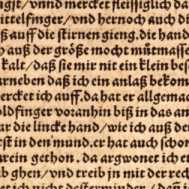 angst/vnnd mercket fleissiglich da
ittelfinger/vnd hernoch auch di
ß auff die stirnen gieng. die hand
h auß der größe mocht mütmasse
kalt/daß sie mir nit ein klein bese
arneben daß ich ein anlaß bekom
ercket ich auff.da hat er allgema
oldfinger voranhin biß in das an
ar die lincke hand/wie ich auß de
rst in den mund.er hat auch schon
urein gethon.da argwonet ich et
ub ghen/vnd treib in mit der rec